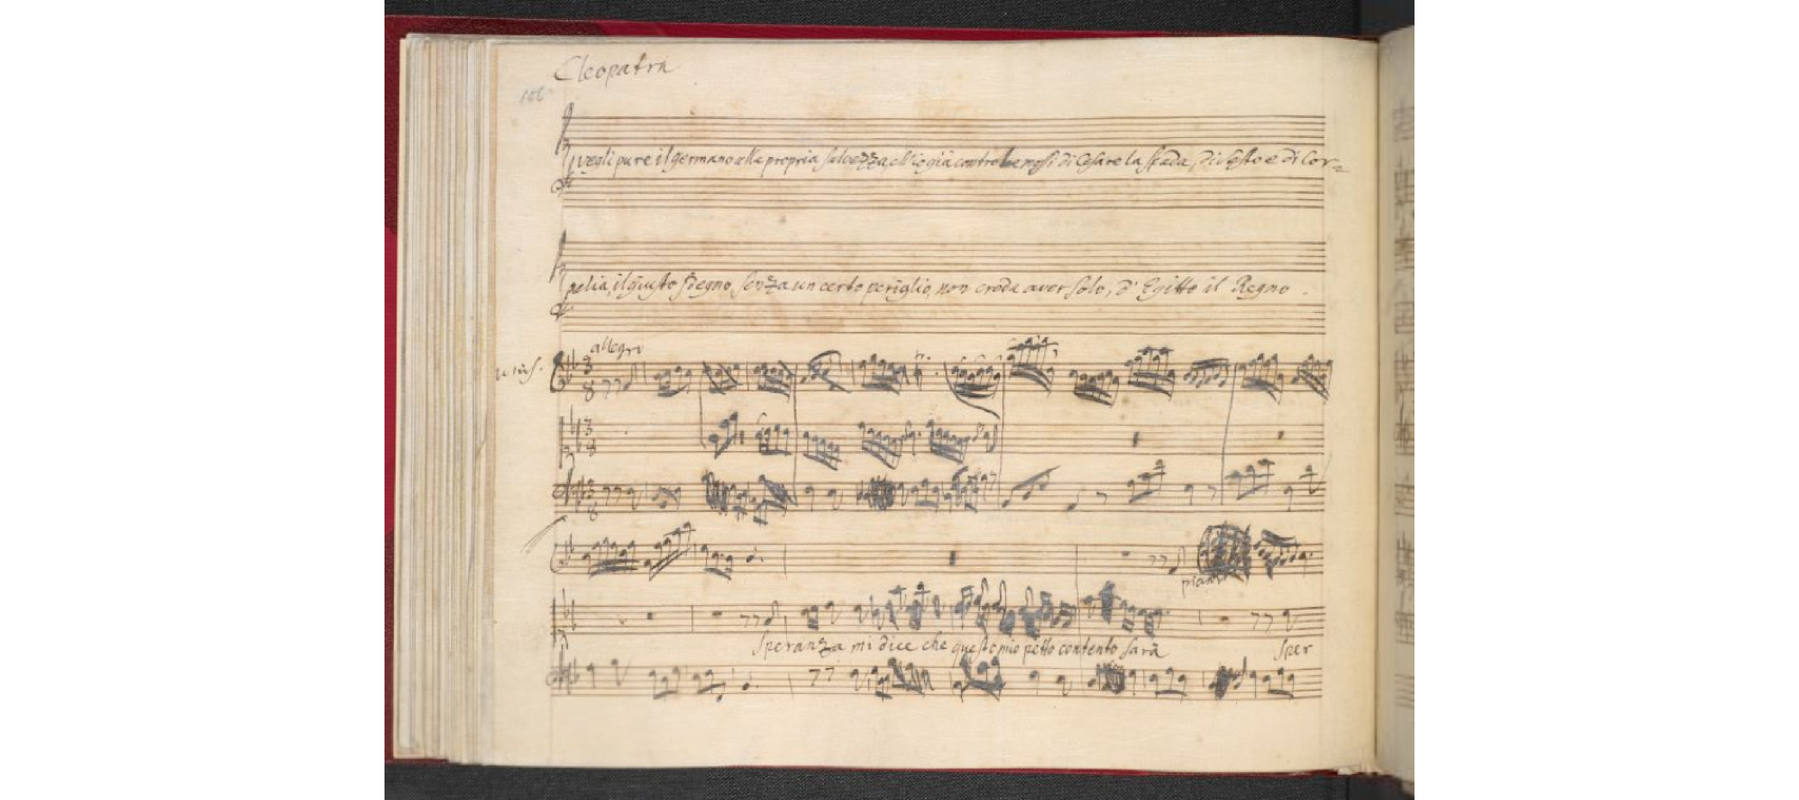 Cleopatra
106
vegli pure il germano alla propria salvezza, ch'io già contro le mossi di Cesare la spada, di Sesto e di Cor-
nelia, il giusto sdegno, senza un certo periglio, non creda aver solo, d'Egitto il Regno.
allegro
unis.
3
8
3
8
3
8
piano
Speranza mi dice che questo mio petto contento sarà sper